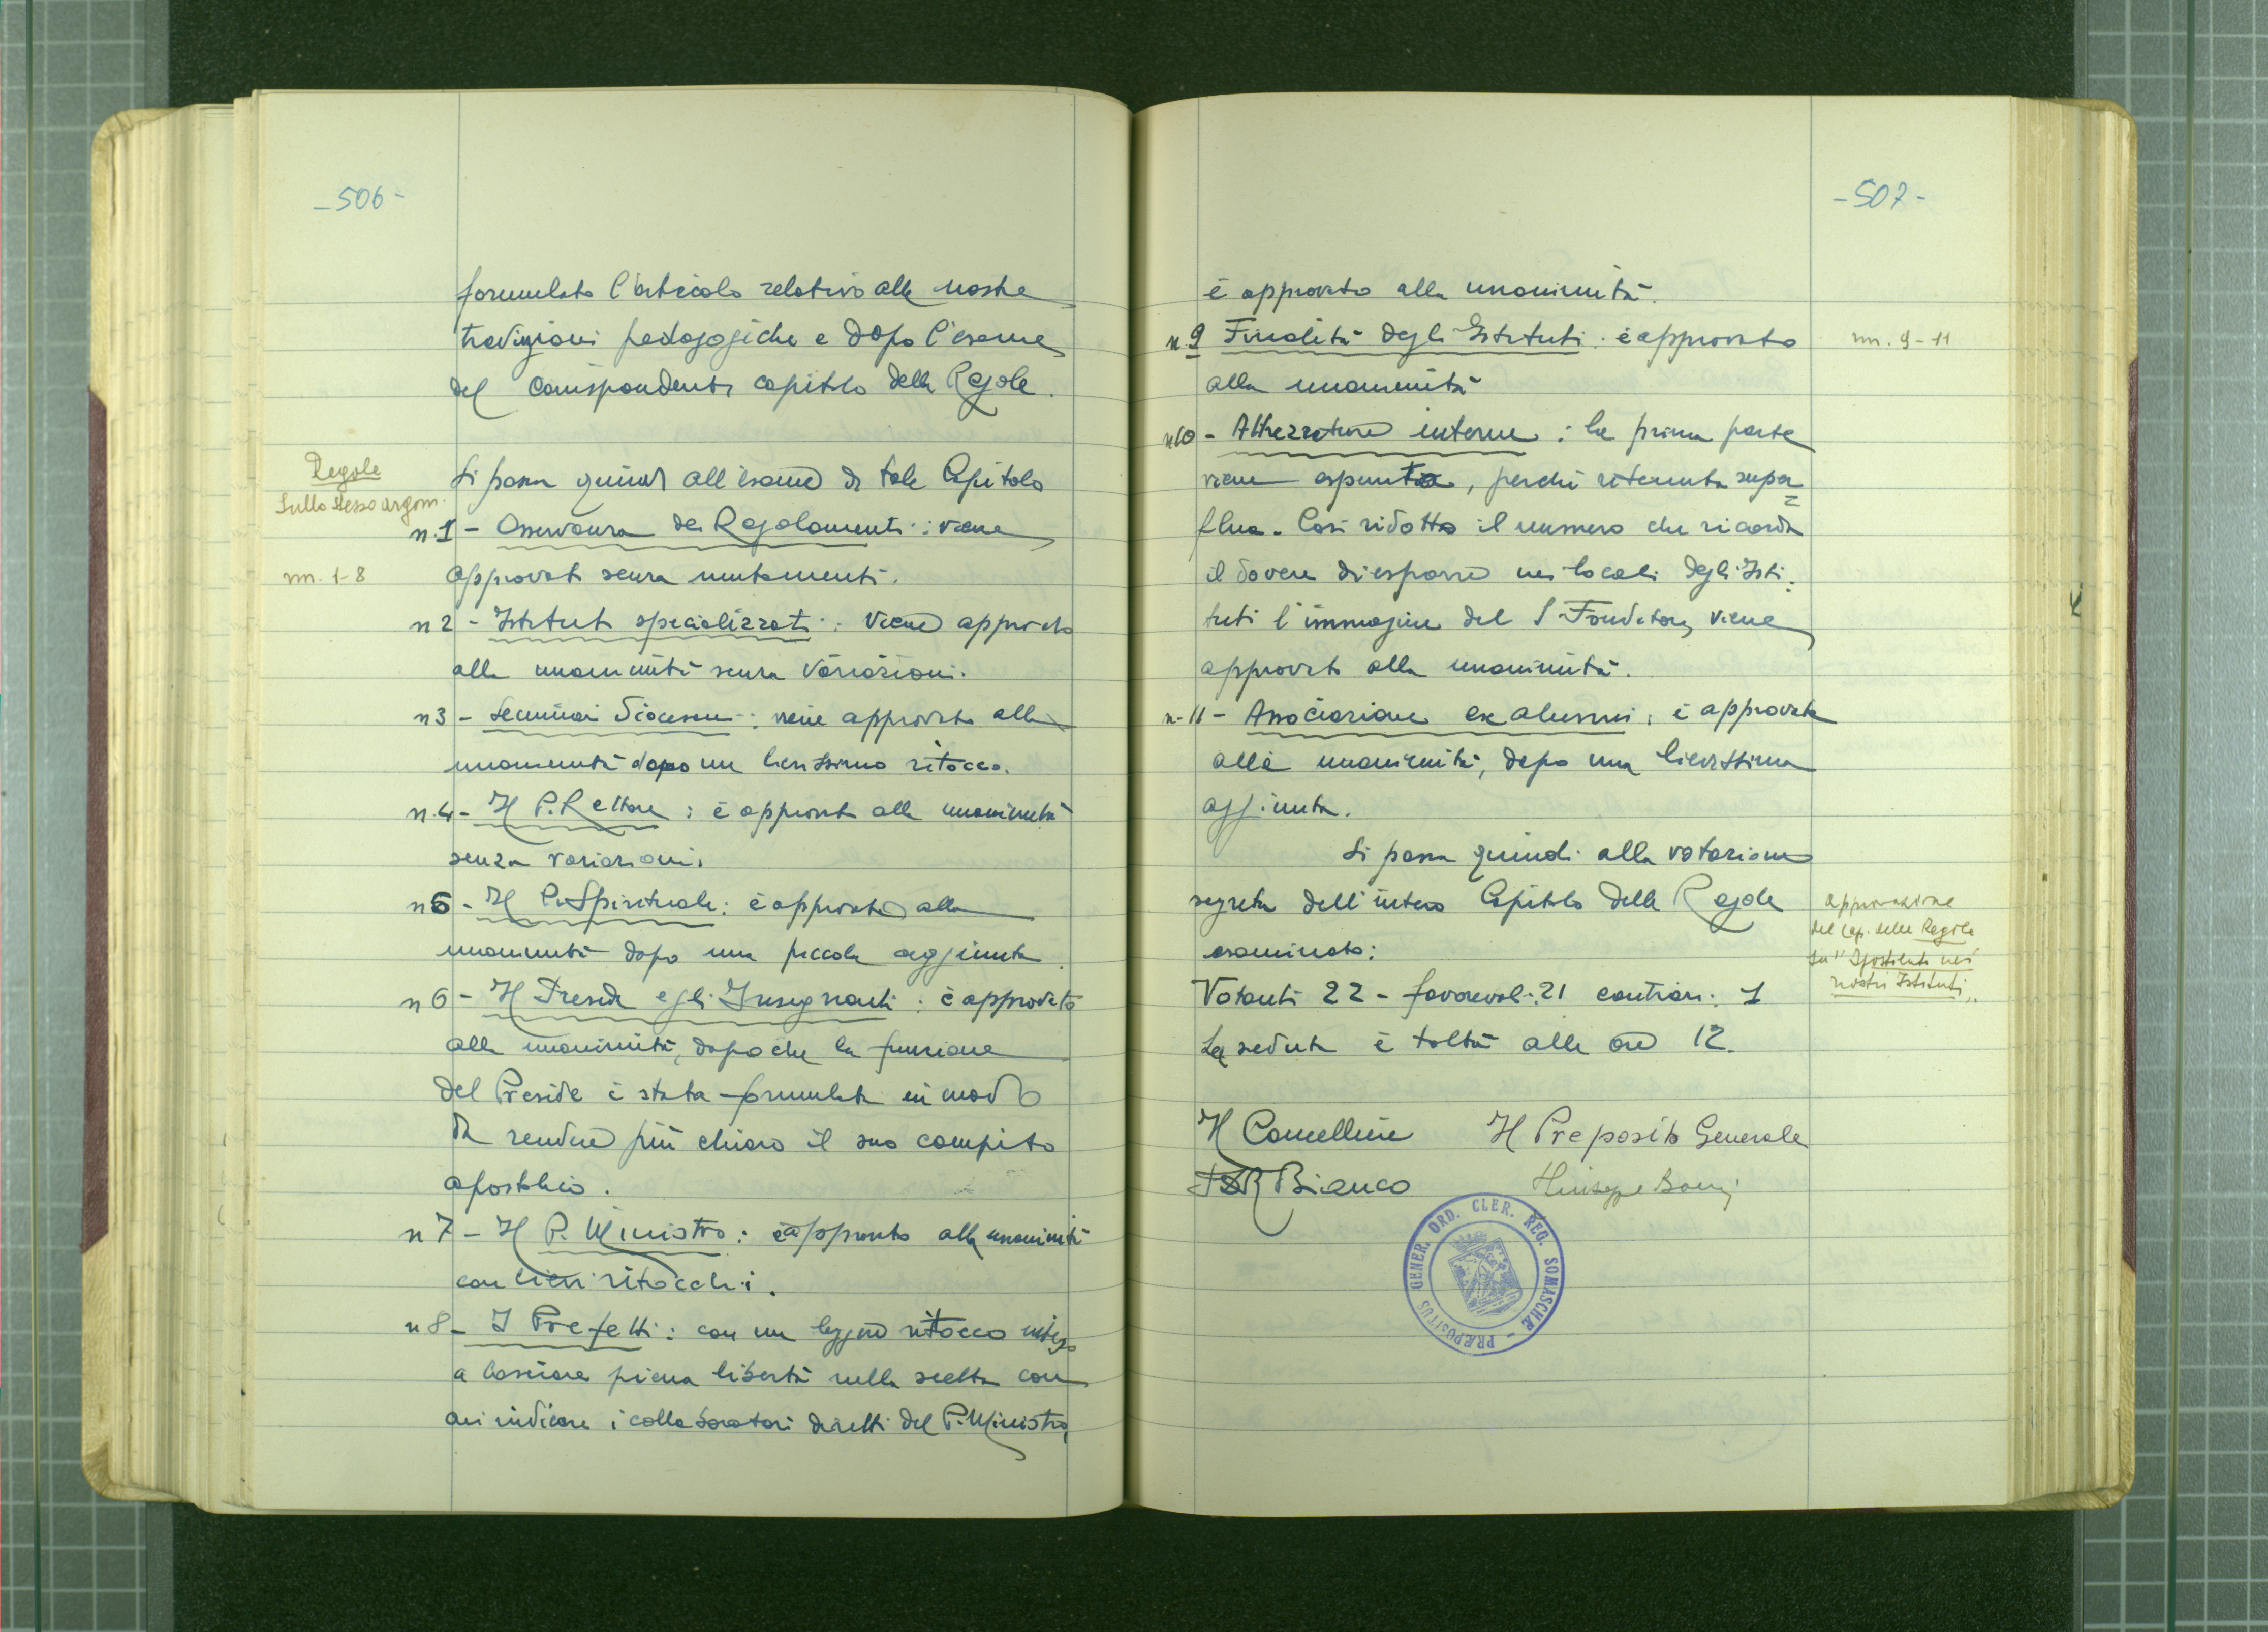 -506-
formulato l'articolo relativo alle nostre
tradizioni pedagogiche e dopo l'esame
del corrispondente capitolo delle Regole.
Regole
sullo stesso argom.
Si passa quindi all'esame di tale Capitolo
n.1 - Osservanza dei Regolamenti: viene
nn. 1-8
approvato senza mutamenti.
n 2 - Istituti specializzati: viene approvato
alla unanimità senza variazioni.
n 3 - Seminari Diocesani: viene approvato alla
unanimità dopo un lievissimo ritocco.
n.4 - Il P. Rettore: è approvato alla unanimità
senza variazioni.
n 5 - Il P. Spirituale: è approvato alla
unanimità dopo una piccola aggiunta.
n 6 - Il Preside e gli Insegnanti: è approvato
alla unanimità, dopo che la funzione
del Preside è stata formulata in modo
da rendere più chiaro il suo compito
apostolico.
n 7 - Il P. Ministro: è approvato alla unanimità
con lievi ritocchi.
n 8 - I Prefetti: con un leggero ritocco inteso
a lasciare piena libertà nella scelta con
cui indicare i collaboratori diretti del P. Ministro,
-507-
è approvato alla unanimità.
n.9 Finalità degli Istituti: è approvato
nn. 9-11
alla unanimità
n 10 - Attrezzature interne: la prima parte
viene espunta, perché ritenuta super=
flua. Così ridotto il numero che ricorda
il dovere di esporre nei locali degli Isti=
tuti l'immagine del S. Fondatore, viene
approvato alla unanimità.
n. 11 - Associazione ex alunni: è approvata
alla unanimità, dopo una lievissima
aggiunta.
Si passa quindi alla votazione
segreta dell'intero Capitolo delle Regole
esaminato:
approvazione
del Cap. delle Regole
su "Apostolato nei
nostri Istituti"
Votanti 22 - favorevoli: 21 contrari: 1
La seduta è tolta alle ore 12.
Il Cancelliere Il Preposito Generale
Bianco Giuseppe
PRÆPOSITUS GENER. ORD. CLER. REG. SOMASCHÆ -